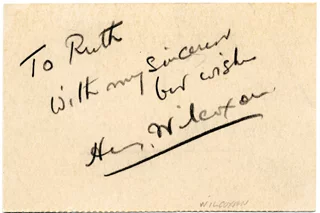 To Ruth
With my sincerest
best wishes
Henry Wilcoxon
WILCOXON